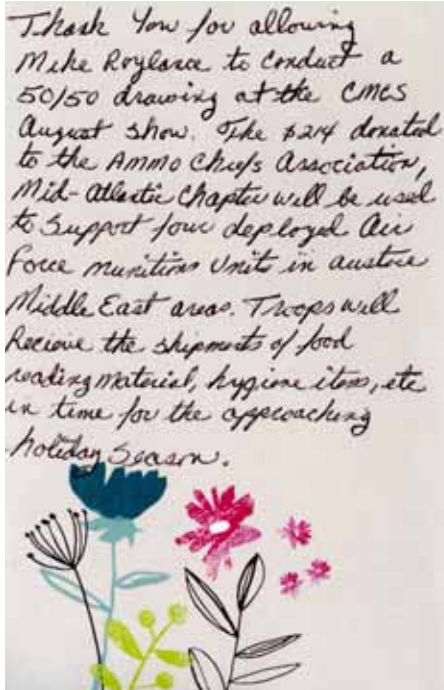 Thank You for allowing
Mike Roylance to conduct a
50/50 drawing at the CMCS
August show. The $214 donated
to the AMMO Chiefs Association,
Mid-Atlantic Chapter will be used
to support four deployed Air
Force munitions units in austere
Middle East areas. Troops will
Recieve the shipments of food
reading material, hygiene items, etc
in time for the approaching
holiday Season.